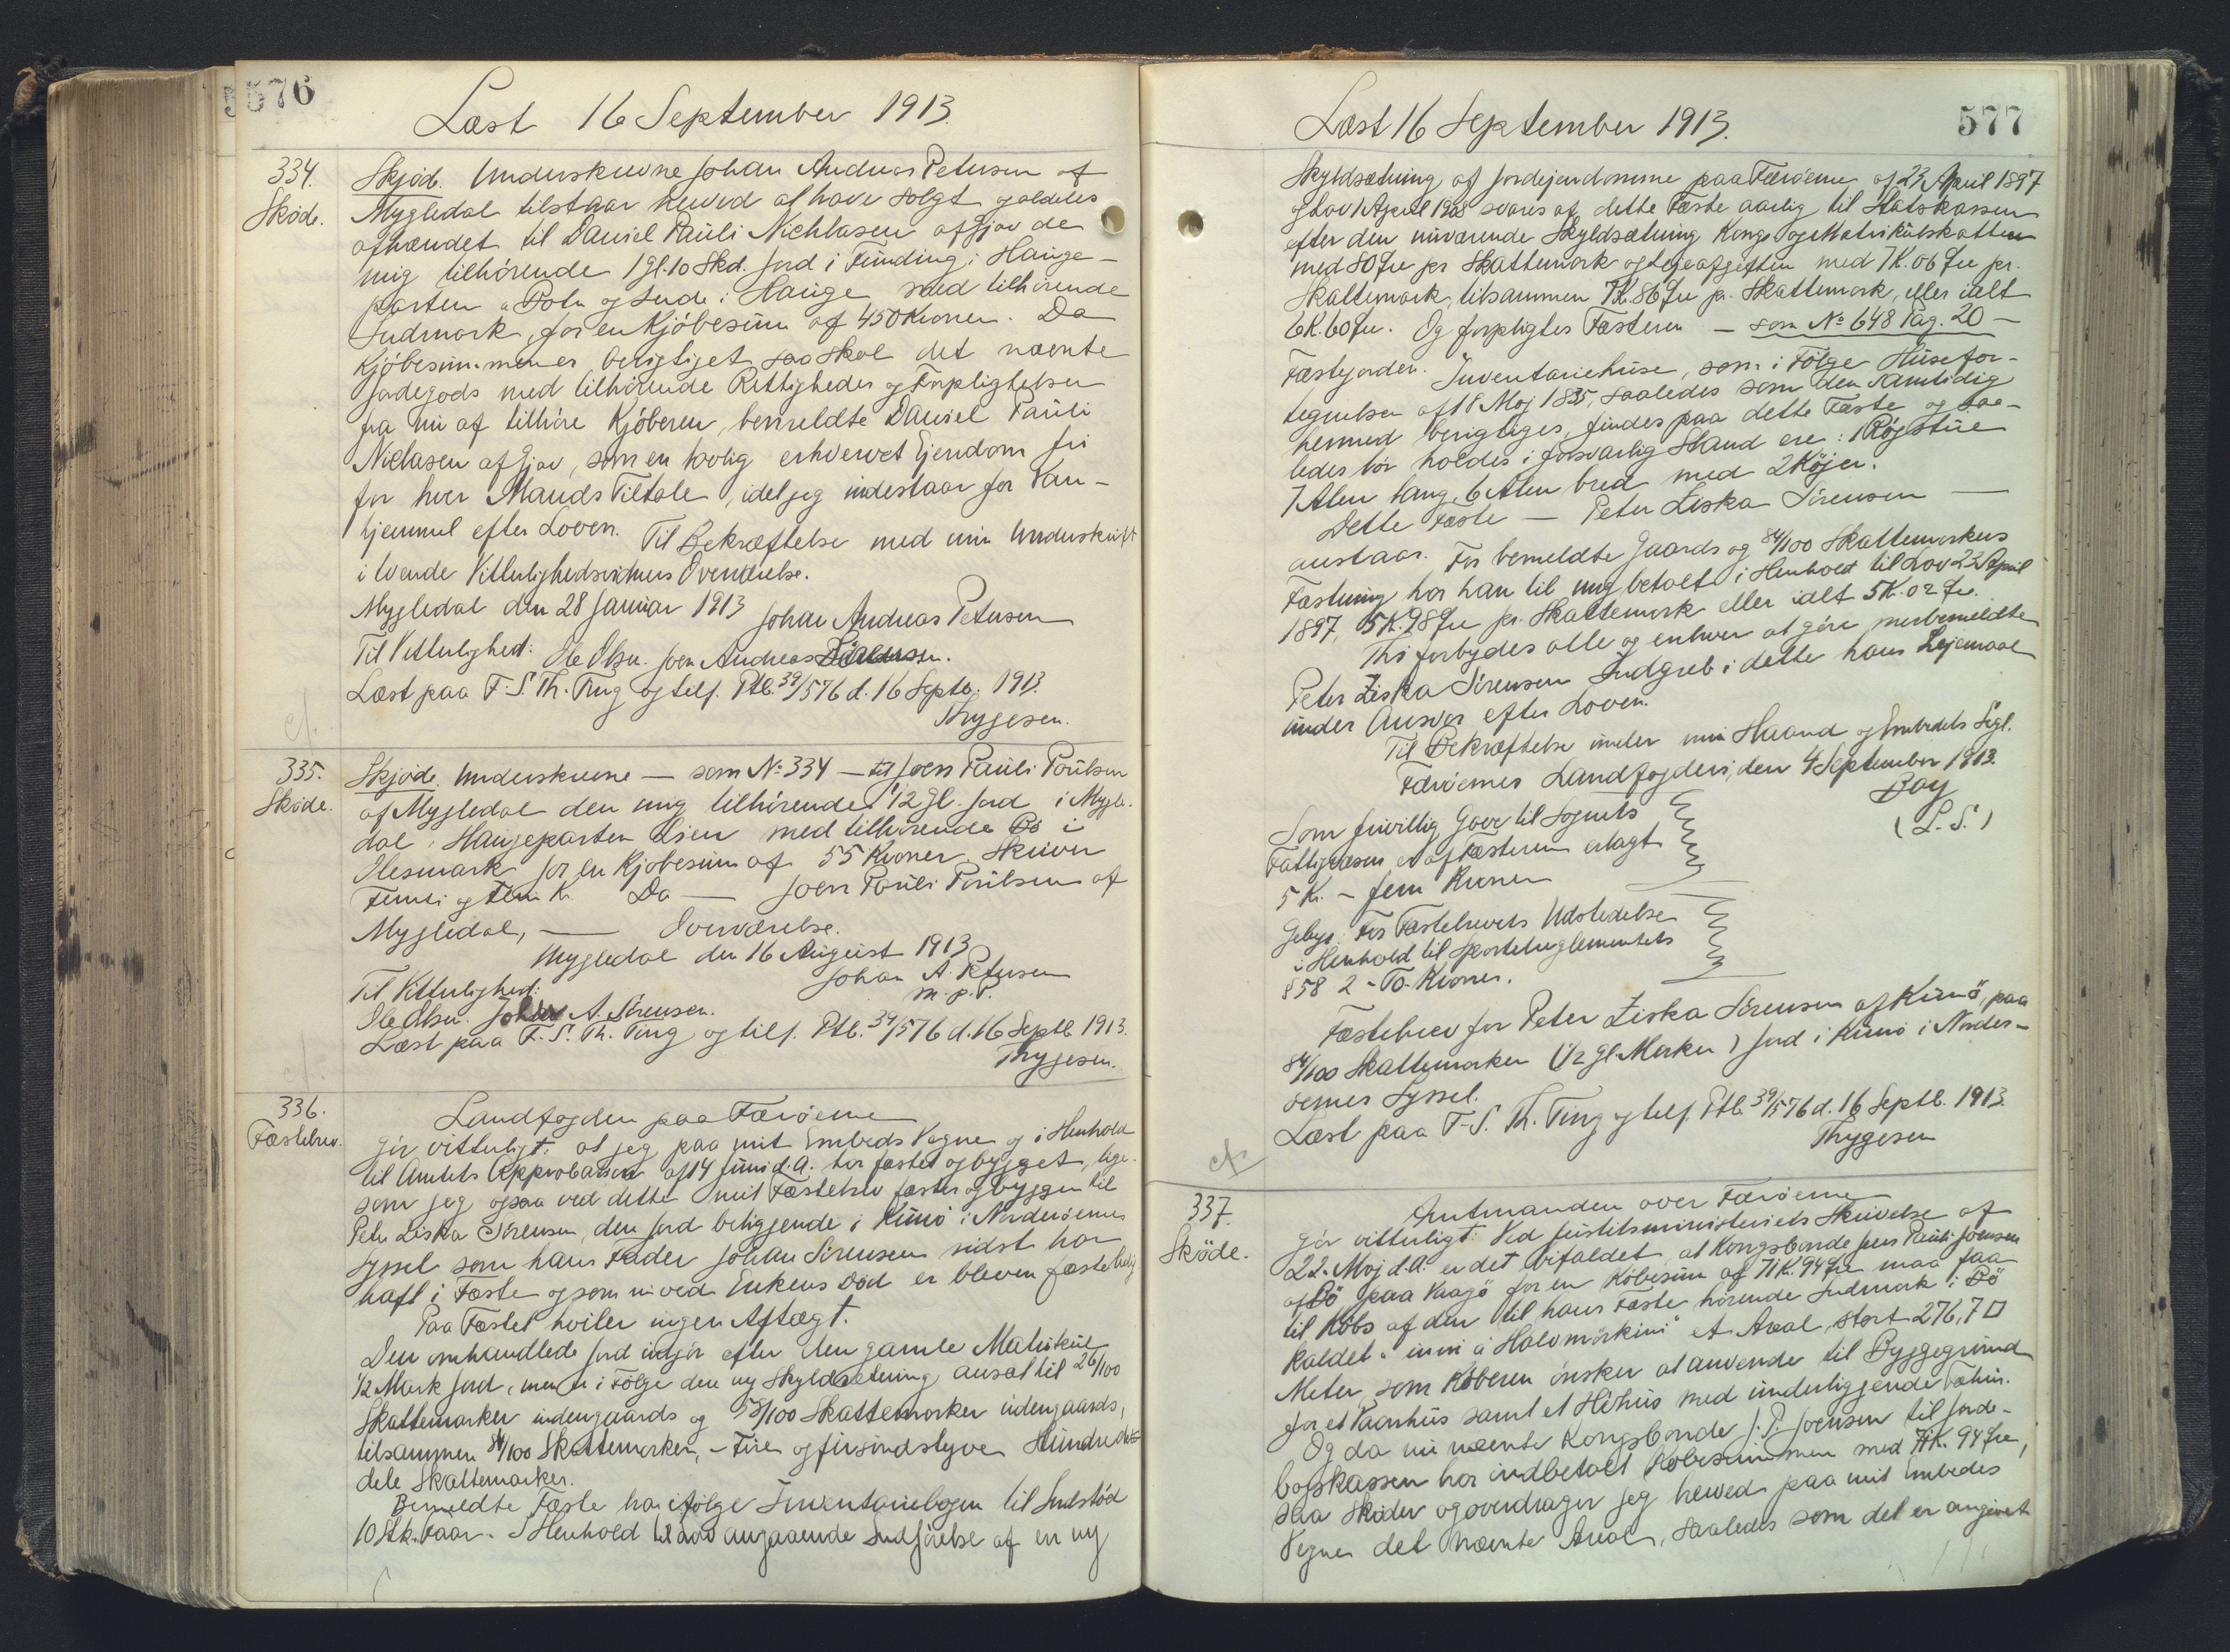 576
Læst 16 September 1913.
334.
Sköde.
Skjöde. Underskrevne Johan Andreas Petersen af
Mygledal tilstaar herved at have solgt og aldeles
afhændet til Daniel Pauli Nichlasen af Gjov de
mig tilhörende 1 gl. 10 Skd. Jord i Funding i Hauge-
parten a Botn og Lude i Hauge med tilhörende
Indmark, for en Kjöbesum af 450 Kroner. Da
Kjöbesummen er berigtiget saa skal det nævnte
Jordegods med tilhörende Rettigheder og Forpligtelser
fra nu af tilhöre Kjöberen, bemeldte Daniel Pauli
Niclasen af Gjov, som en lovlig erhvervet Ejendom fri
for hver Mands Tiltale, idet jeg indestaar for Van-
hjemmel efter Loven. Til Bekræftelse med min Underskrift
i tvende Vitterlighedsvidners Overværelse.
Mygledal den 28 Januar 1913 Johan Andreas Petersen
Til Vitterlighed: Ole Olsen. Joen Andreas Sörensen.
Læst paa F. S. Th. Ting og telf. Ptb. 39/576 d. 16 Septb. 1913.
Thygesen.
cf.
335.
Sköde.
Skjöde. Underskrevne — som № 334 — til Joen Pauli Poulsen
af Mygledal den mig tilhörende 1/2 gl. Jord i Mygle-
dal, Haugeparten Lien med tilhörende Bö i
Olesmark for en Kjöbesum af 55 Kroner, skriver
Femti og Fem Kr. Da — Joen Pauli Poulsen af
Mygledal, — Overværelse.
Mygledal den 16 August 1913
Johan A. Petersen
m. p. P.
Til Vitterlighed:
Ole Olsen. Johan A. Sörensen.
Læst paa F. S. Th. Ting og telf. Ptb. 39/576 d. 16 Septb. 1913.
Thygesen.
cf.
336.
Fæstebrev.
Landfogden paa Færöerne
gör vitterligt: at jeg paa mit Embeds Vegne og i Henhold
til Amtets Approbation af 14 Juni d. A. har fæstet og bygget, lige-
som jeg ogsaa ved dette mit Fæstebrev fæster og bygger til
Peter Ziska Sörensen, den Jord beliggende i Kunö i Norderöernes
Syssel som hans Fader Johan Sörensen sidst har
haft i Fæste og som nu ved Enkens Död er bleven fæsteledig
Paa Fæstet hviler ingen Aftægt.
Den omhandlede Jord udgjör efter den gamle Matrikul
1/2 Mark Jord, men er i Fölge den ny Skyldsætning ansat til 26/100
Skattemarker indengaards og 58/100 Skattemarker udengaards,
tilsammen 84/100 Skattemarker, - Fire og firsindstyve Hundrede
dele Skattemarker.
Bemeldte Fæste har ifölge Inventariebogen til Indstöd
10 Stk. Faar. I Henhold til Lov angaaende Indförelse af en ny
577
Læst 16 September 1913.
Skyldsætning af Jordejendomme paa Færöerne af 23 April 1897
og Lov 1 April 1908 svares af dette Fæste aarlig til Statskassen
efter den nuværende Skyldsætning Konge og Matrikulskatten
med 80 Öre pr Skattemark og Lejeafgiften med 7 K. 06 Öre pr.
Skattemark, tilsammen 7 K. 86 Öre pr. Skattemark, eller ialt
6 K. 60 Öre. Og forpligtes Fæsteren — som № 648 Pag. 20 —
Fæstejorden. Inventariehuse, som i Fölge Husefor-
tegnelsen af 18 Maj 1835, saaledes som den samtidig
hermed berigtiges, findes paa dette Fæste og saa-
ledes bör holdes i forsvarlig Stand ere: 1 Rögstue
7 Alen lang, 6 Alen bred med 2 Köjer.
Dette Fæste — Peter Ziska Sörensen —
anstaar. For bemeldte Gaards og 84/100 Skattemarkers
Fæstning har han til mig betalt i Henhold til Lov 23 April
1897, 5 K. 98 Öre pr. Skattemark eller ialt 5 K. 02 Öre.
Thi forbydes alle og enhver at göre merbemeldte
Peter Ziska Sörensen Indgreb i dette hans Lejemaal
under Ansvar efter Loven.
Til Bekræftelse under min Haand og Embedets Segl.
Færöernes Landfogderi, den 4 September 1913.
Bay
(L. S.)
Som frivillig Gave til Sognets
Fattigvæsen er af Fæsteren erlagt
5 Kr. - fem Kroner
Gebyr for Fæstebrevets Udstedelse
i Henhold til Sportelreglementets
§ 58 2 - To - Kroner.
Fæstebrev for Peter Ziska Sörensen af Kunö, paa
84/100 Skattemarker (1/2 gl. Marker) Jord i Kunö i Norder-
öernes Syssel.
Læst paa F. S. Th. Ting og telf. Ptb. 39/576 d. 16 Septb. 1913.
Thygesen
cf.
337.
Sköde.
Amtmanden over Færöerne
gör vitterligt: Ved Justitsministeriets Skrivelse af
22. Maj d. A. er det bifaldet, at Kongsbonde Jens Pauli Joensen
af Bö paa Vaagö for en Köbesum af 71 K. 94 Öre maa faa
til Köbs af den til hans Fæste hörende Indmark i Bö
kaldet "inni á Halvmörkini" et Areal, stort 276,7 □
Meter, som Köberen önsker at anvende til Byggegrund
for et Vaanhus samt et Höhus med underliggende Fæhus.
Og da nu nævnte Kongsbonde J. P. Joensen til Jorde-
bogskassen har indbetalt Köbesummen med 71 K. 94 Öre,
saa sköder og overdrager jeg herved paa mit Embedes
Vegne det nævnte Areal, saaledes som det er angivet